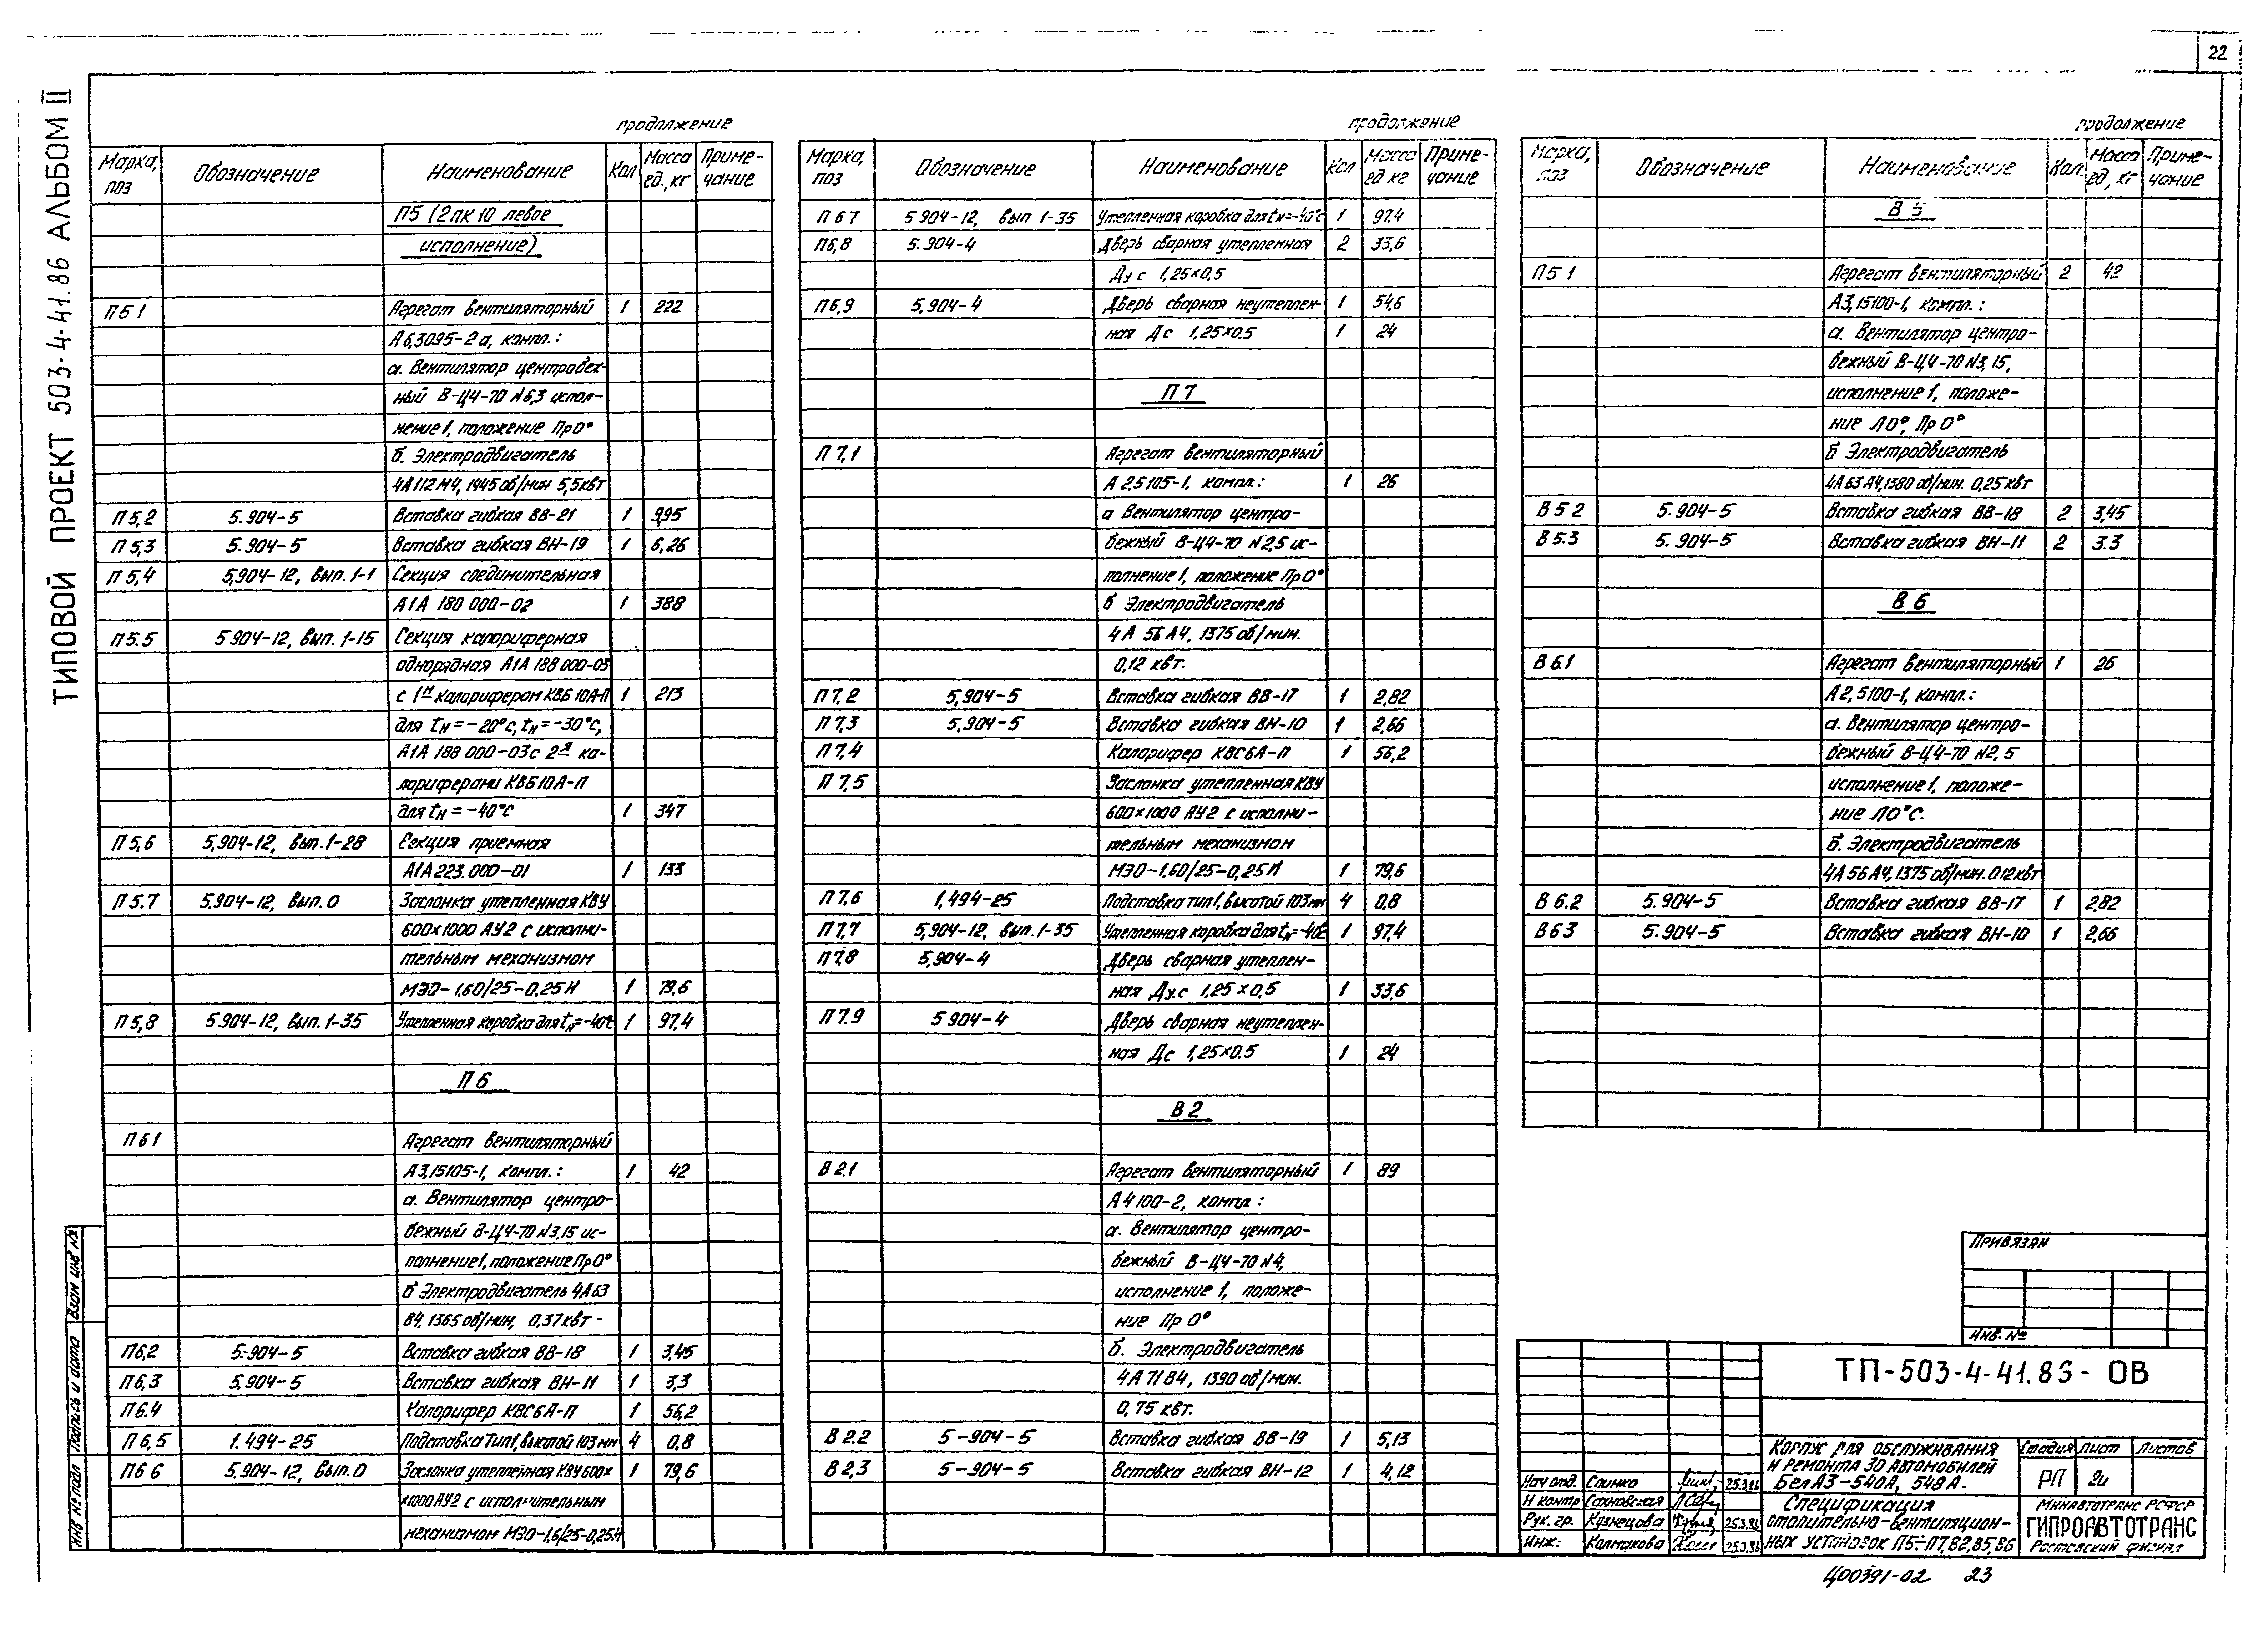 22
ТИПОВОЙ ПРОЕКТ 503-4-41.86 АЛЬБОМ II
продолжение
Марка, поз Обозначение Наименование Кол Масса ед., кг Приме-чание
П5 (2ПК10 левое
исполнение)
П5 1 Агрегат вентиляторный 1 222
А6,3095-2а, компл.:
а. Вентилятор центробеж-
ный В-Ц4-70 №6,3 испол-
нение 1, положение Пр0°
б. Электродвигатель
4А112М4, 1445 об/мин 5,5квт
П5,2 5.904-5 Вставка гибкая ВВ-21 1 9,95
П5,3 5.904-5 Вставка гибкая ВН-19 1 6,26
П5,4 5,904-12, вып. 1-1 Секция соединительная
А1А 180 000-02 1 388
П5.5 5 904-12, вып. 1-15 Секция калориферная
однорядная А1А 188 000-03
с 1м калорифером КВБ10А-П 1 213
для tн = -20°с, tн = -30°с,
А1А 188 000-03 с 2я ка-
лориферами КВБ10А-П
для tн = -40°с 1 347
П5,6 5,904-12, вып. 1-28 Секция приемная
А1А 223.000-01 1 133
П5.7 5.904-12, вып. 0 Заслонка утепленная КВУ
600×1000 АУ2 с исполни-
тельным механизмом
МЭО-1,60/25-0,25И 1 79,6
П5,8 5 904-12, вып. 1-35 Утепленная коробка для tн=-40°с 1 97,4
П 6
П6 1 Агрегат вентиляторный
А3,15105-1, компл.: 1 42
а. Вентилятор центро-
бежный В-Ц4-70 №3,15 ис-
полнение 1, положение Пр0°
б Электродвигатель 4А63
В4, 1365 об/мин, 0,37квт -
П6,2 5.904-5 Вставка гибкая ВВ-18 1 3,45
П6,3 5.904-5 Вставка гибкая ВН-11 1 3,3
П6.4 Калорифер КВС6А-П 1 56,2
П6,5 1.494-25 Подставка Тип 1, высотой 103 мм 4 0,8
П6 6 5.904-12, вып. 0 Заслонка утепленная КВУ 600×	1 79,6
×1000 АУ2 с исполнительным
механизмом МЭО-1,6/25-0,25И
продолжение
Марка, поз Обозначение Наименование Кол Масса ед кг Приме-чание
П 6 7 5 904-12, вып 1-35 Утепленная коробка для tн=-40°с 1 97,4
П6,8 5.904-4 Дверь сварная утепленная 2 33,6
Ду с 1,25×0,5
П6,9 5,904-4 Дверь сварная неутеплен- 1 54,6
ная Дс 1,25×0.5 1 24
П 7
П 7,1 Агрегат вентиляторный
А 2,5105-1, компл.: 1 26
а Вентилятор центро-
бежный В-Ц4-70 №2,5 ис-
полнение 1, положение Пр0°
б Электродвигатель
4А 56А4, 1375 об/мин.
0,12 квт.
П 7,2 5,904-5 Вставка гибкая ВВ-17 1 2,82
П 7,3 5,904-5 Вставка гибкая ВН-10 1 2,66
П 7,4 Калорифер КВС6А-П 1 56,2
П 7,5 Заслонка утепленная КВУ
600×1000 АУ2 с исполни-
тельным механизмом
МЭО-1,60/25-0,25И 1 79,6
П 7.6 1,494-25 Подставка тип 1, высотой 103мм 4 0,8
П 7,7 5,904-12, вып. 1-35 Утепленная коробка для tн=-40°с 1 97,4
П 7,8 5,904-4 Дверь сварная утеплен-
ная Ду.с 1,25×0,5 1 33,6
П 7.9 5 904-4 Дверь сварная неутеплен-
ная Дс 1,25×0.5 1 24
В 2
В 2,1 Агрегат вентиляторный 1 89
А 4100-2, компл:
а. Вентилятор центро-
бежный В-Ц4-70 №4,
исполнение 1, положе-
ние Пр 0°
б. Электродвигатель
4А 71В4, 1390 об/мин.
0,75 квт.
В 2.2 5-904-5 Вставка гибкая ВВ-19 1 5,13
В 2,3 5-904-5 Вставка гибкая ВН-12 1 4,12
продолжение
Марка, поз Обозначение Наименование Кол. Масса ед, кг Приме-чание
В 5
П5 1 Агрегат вентиляторный 2 42
А3,15100-1, компл.:
а. Вентилятор центро-
бежный В-Ц4-70 №3,15,
исполнение 1, положе-
ние Л0°, Пр0°
б Электродвигатель
4А63А4, 1380 об/мин. 0,25квт
В 5 2 5.904-5 Вставка гибкая ВВ-18 2 3,45
В 5.3 5.904-5 Вставка гибкая ВН-11 2 3.3
В 6
В 6.1 Агрегат вентиляторный 1 26
А2,5100-1, компл.:
а. Вентилятор центро-
бежный В-Ц4-70 №2,5
исполнение 1, положе-
ние Л0°С.
б. Электродвигатель
4А56А4, 1375 об/мин. 0,12квт
В 6.2 5.904-5 Вставка гибкая ВВ-17 1 2,82
В 6 3 5.904-5 Вставка гибкая ВН-10 1 2,66
Привязан
Инв. №
ТП-503-4-41.86- ОВ
Корпус для обслуживания
и ремонта 30 автомобилей
БелАЗ-540А, 548А.
Стадия Лист Листов
РП 2и
Спецификация
отопительно-вентиляцион-
ных установок П5÷П7,В2,В5,В6
Минавтотранс РСФСР
ГИПРОАВТОТРАНС
Ростовский филиал
Нач отд. Спинко 25.3.86
Н контр Сахновская
Рук. гр. Кузнецова 25.3.86
Инж: Колмакова 25.3.86
Инв № подл Подпись и дата Взам инв №
Ц00391-02 23